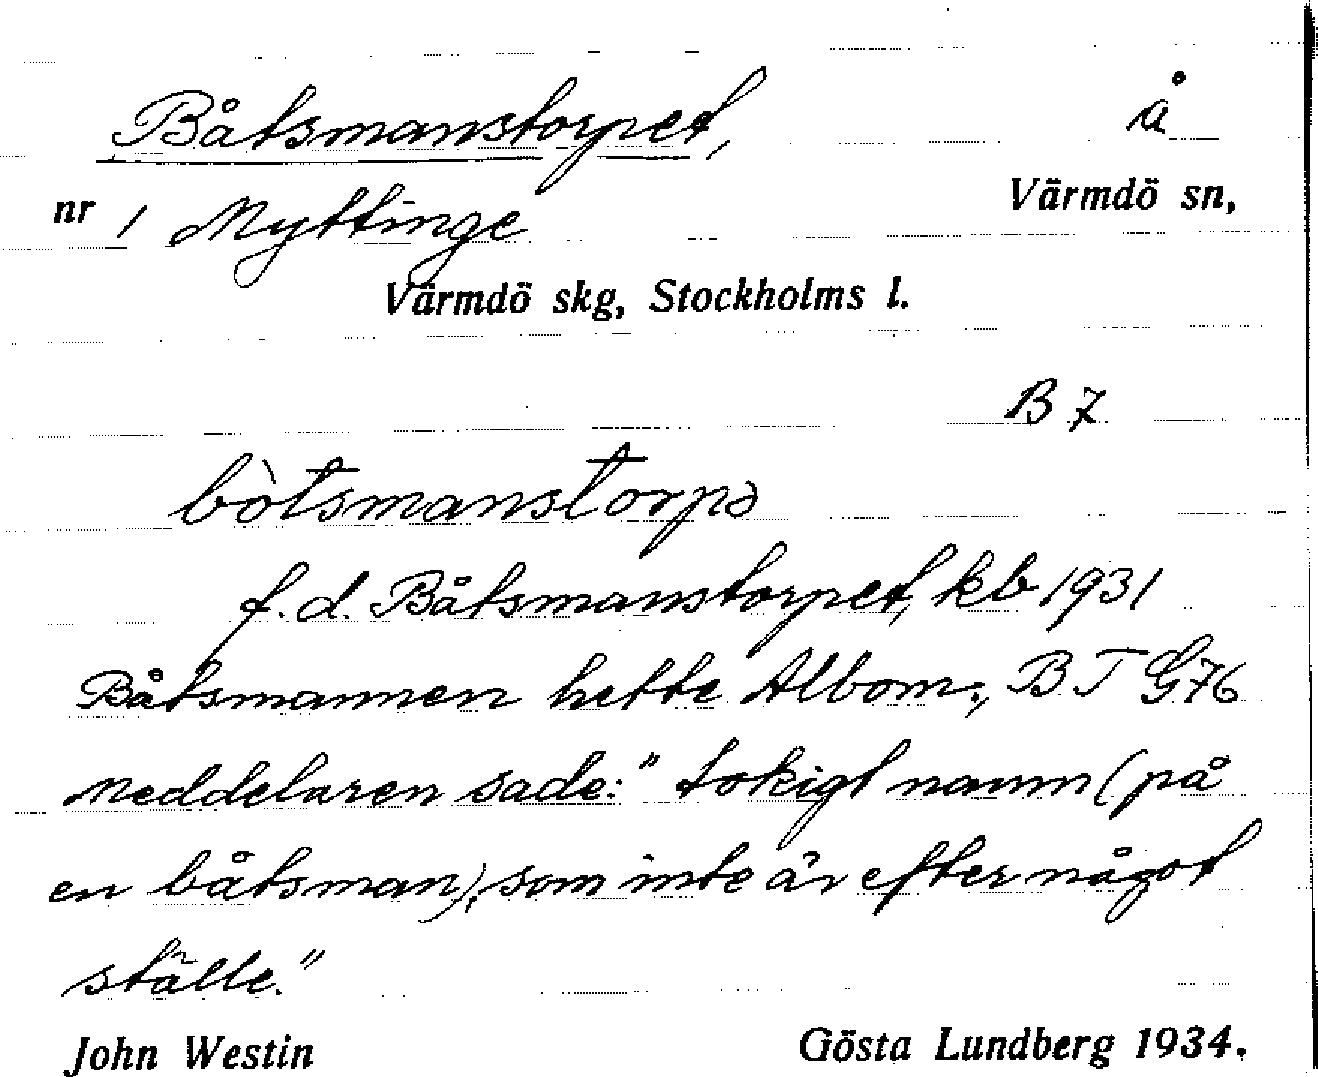 Båtsmanstorpet, å
nr 1 Myttinge Värmdö sn,
Värmdö skg, Stockholms l.
B 7
bòtsmanstorpə
f.d. Båtsmanstorpet, kb 1931
Båtsmannen hette Albom., BT G76
Meddelaren sade: "tokigt namn (på
en båtsman), som inte är efter något
ställe."
John Westin Gösta Lundberg 1934.